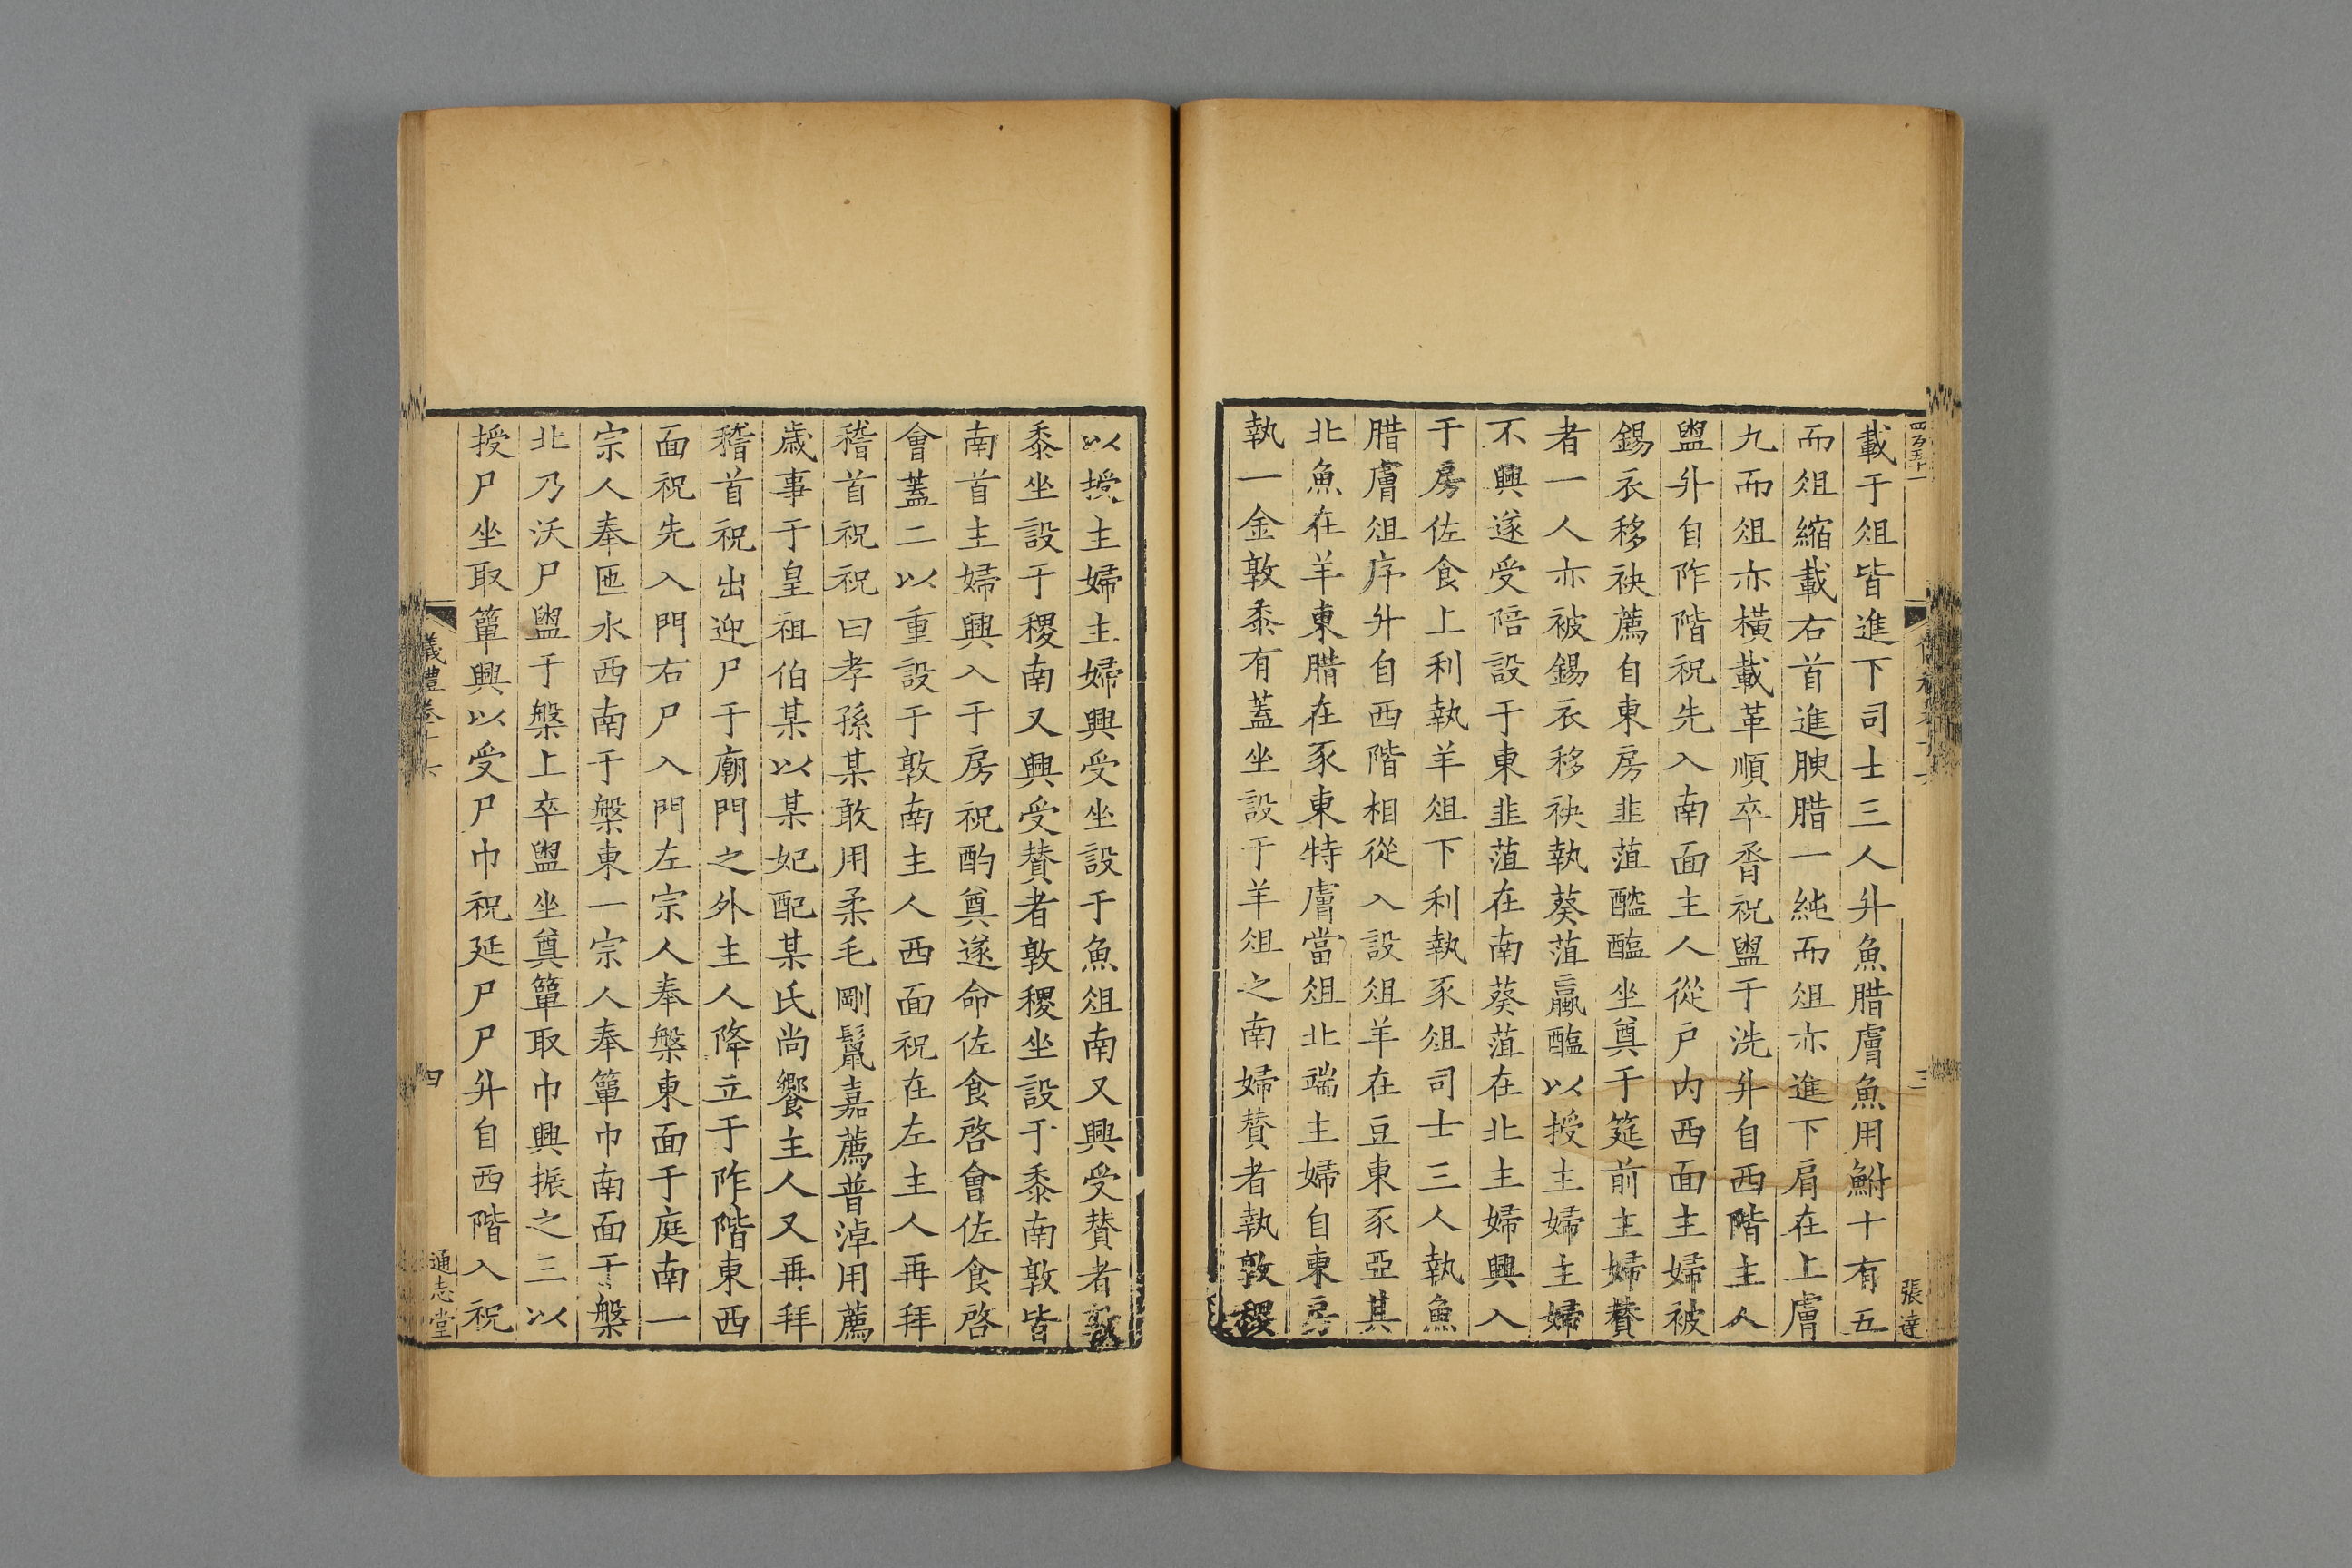 載于俎皆進下司士三人升魚腊膚魚用鮒十有五
而俎縮載右首進腴腊一純而俎亦進下肩在上膚
九而俎亦橫載革順卒脀祝盥于洗升自西階主人
盥升自阼階祝先入南面主人從戶內西面主婦被
錫衣移袂薦自東房韭菹醓醢坐奠于筵前主婦贊
者一人亦被錫衣移袂執葵菹蠃醢以授主婦主婦
不興遂受陪設于東韭菹在南葵菹在北主婦興入
于房佐食上利執羊俎下利執豕俎司士三人執魚
腊膚俎序升自西階相從入設俎羊在豆東豕亞其
北魚在羊東腊在豕東特膚當俎北端主婦自東房
執一金敦黍有蓋坐設于羊俎之南婦贊者執敦稷
張達
三
以授主婦主婦興受坐設于魚俎南又興受贊者敦
黍坐設于稷南又興受贊者敦稷坐設于黍南敦皆
南首主婦興入于房祝酌奠遂命佐食啓會佐食啓
會蓋二以重設于敦南主人西面祝在左主人再拜
稽首祝祝曰孝孫某敢用柔毛剛鬣嘉薦普淖用薦
歲事于皇祖伯某以某妃配某氏尚饗主人又再拜
稽首祝出迎尸于廟門之外主人降立于阼階東西
面祝先入門右尸入門左宗人奉槃東面于庭南一
宗人奉匜水西南于槃東一宗人奉簞巾南面于槃
北乃沃尸盥于槃上卒盥坐奠簞取巾興振之三以
授尸坐取簞興以受尸巾祝延尸尸升自西階入祝
儀禮卷十六
四
通志堂